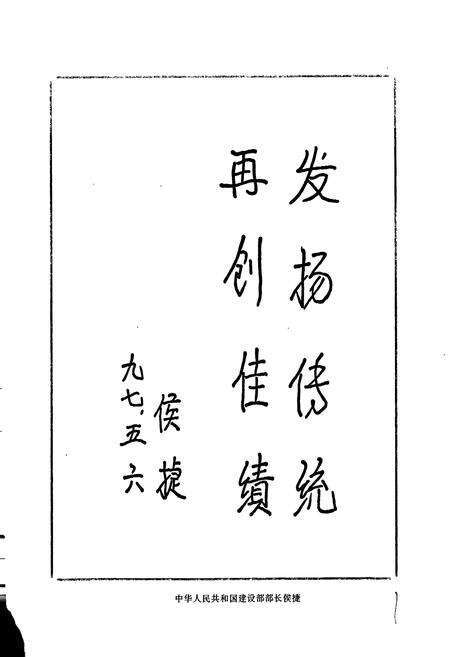 发扬传统
再创佳绩
侯捷
九七.五六
中华人民共和国建设部部长侯捷